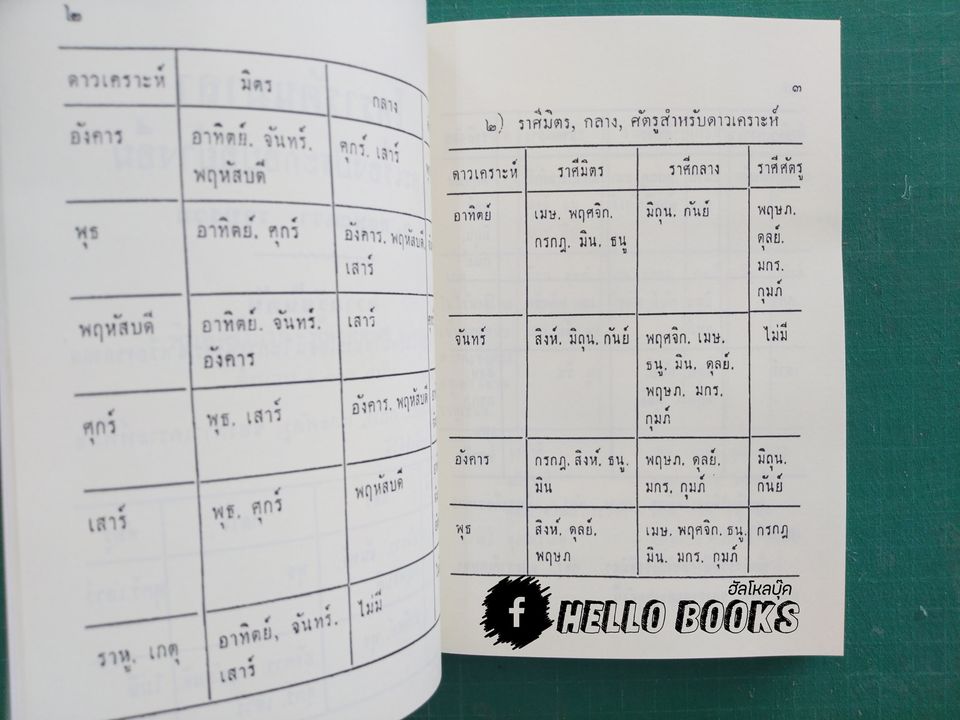 ๒
ดาวเคราะห์ มิตร กลาง
อังคาร อาทิตย์. จันทร์. ศุกร์. เสาร์
พฤหัสบดี
พุธ อาทิตย์. ศุกร์ อังคาร. พฤหัสบดี.
เสาร์
พฤหัสบดี อาทิตย์. จันทร์. เสาร์
อังคาร
ศุกร์ พุธ. เสาร์ อังคาร. พฤหัสบดี
เสาร์ พุธ. ศุกร์ พฤหัสบดี
ราหู. เกตุ อาทิตย์, จันทร์. ไม่มี
เสาร์
๓
๒) ราศีมิตร, กลาง, ศัตรูสำหรับดาวเคราะห์
ดาวเคราะห์ ราศีมิตร ราศีกลาง ราศีศัตรู
อาทิตย์ เมษ. พฤศจิก. มิถุน. กันย์ พฤษภ.
กรกฎ. มิน. ธนู ดุลย์.
มกร.
กุมภ์
จันทร์ สิงห์. มิถุน. กันย์ พฤศจิก. เมษ. ไม่มี
ธนู. มิน. ดุลย์.
พฤษภ. มกร.
กุมภ์
อังคาร กรกฎ. สิงห์. ธนู. พฤษภ. ดุลย์. มิถุน.
มิน มกร. กุมภ์ กันย์
พุธ สิงห์. ดุลย์. เมษ. พฤศจิก. ธนู. กรกฎ
พฤษภ มิน. มกร. กุมภ์
ฮัลโหลบุ๊ค
f HELLO BOOKS